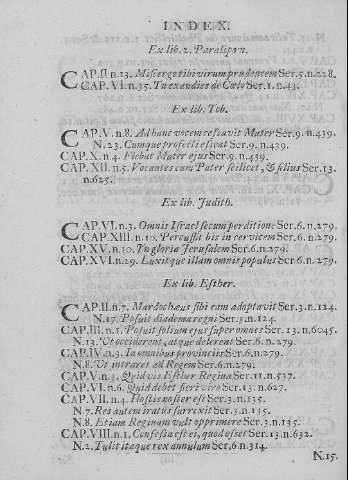 INDEX.
Ex lib. 2. Paralipon.
CAP. II n.13. Misi ergo tibi virum prudentem Ser.5.n.228.
CAP. VI.n.35. Tu exaudies de Cœlo Ser.1.n.43.
Ex lib. Tob.
CAP. V.n.8. Ad hanc vocem cessavit Mater Ser.9.n.439.
N.23. Cumque profecti essent Ser.9.n.439.
CAP. X.n.4. Flebat Mater ejus Ser.9.n.439.
CAP. XII.n.5. Vocantes eum Pater scilicet, & filius Ser.13.
n.625.
Ex lib. Judith.
CAP. VI.n.3. Omnis Israel tecum perditione Ser.6.n.279.
CAP. XIII.n.10. Percussit bis in cervicem Ser.6.n.279.
CAP. XV.n.10. Tu gloria Jerusalem Ser.6.n.279.
CAP. XVI.n.29. Luxitque illam omnis populus Ser.6.n.279.
Ex lib. Esther.
CAP. II.n.7. Mardochæus sibi eam adoptavit Ser.3.n.124.
N.17. Posuit diadema regni Ser.3.n.124.
CAP. III.n.1. Posuit solium ejus super omnes Ser.13.n.6045.
N.13. Ut occiderent, atque delerent Ser.6.n.279.
CAP. IV.n.3. In omnibus provinciis Ser.6.n.279.
N.8. Ut intraret ad Regem Ser.6.n.279.
CAP. V.n.3. Quid vis Esther Regina Ser.11.n.537.
CAP. VI.n.6. Quid debet fieri viro Ser.13.n.627.
CAP. VII.n.4. Hostis noster est Ser.3.n.135.
N.7. Rex autem iratus surrexit Ser.3.n.135.
N.8. Etiam Reginam vult opprimere Ser.3.n.135.
CAP. VIII.n.1. Confessa est ei, quod esset Ser.13.n.632.
N.2. Tulitque rex annulum Ser.6.n.314.
N.15.